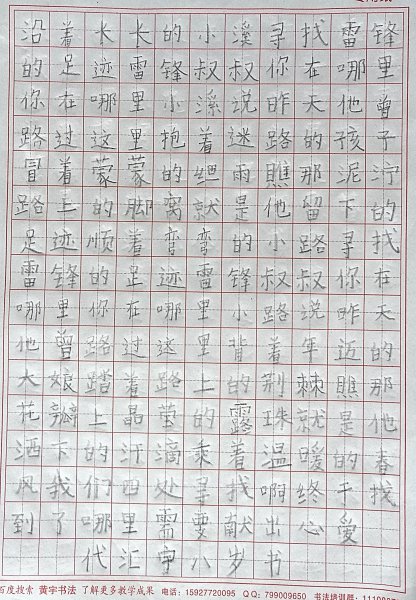 沿着长长的小溪寻找雷锋
的足迹雷锋叔叔你在哪里
你在哪里小溪说昨天他曾
路过这里抱着迷路的孩子
冒着蒙蒙的细雨瞧那泥泞
路上的脚窝就是他留下的
足迹顺着弯弯的小路寻找
雷锋的足迹雷锋叔叔你在
哪里你在哪里小路说昨天
他曾路过这里背着年迈的
大娘踏着路上的荆棘瞧那
花瓣上晶莹的露珠就是他
洒下的汗滴乘着温暖的春
风我们四处寻找啊终于找
到了哪里需要献出心爱
代汇宇八岁书
百度搜索 黄宇书法 了解更多教学成果 电话：15927720095 QQ：799009650 书法培训群：